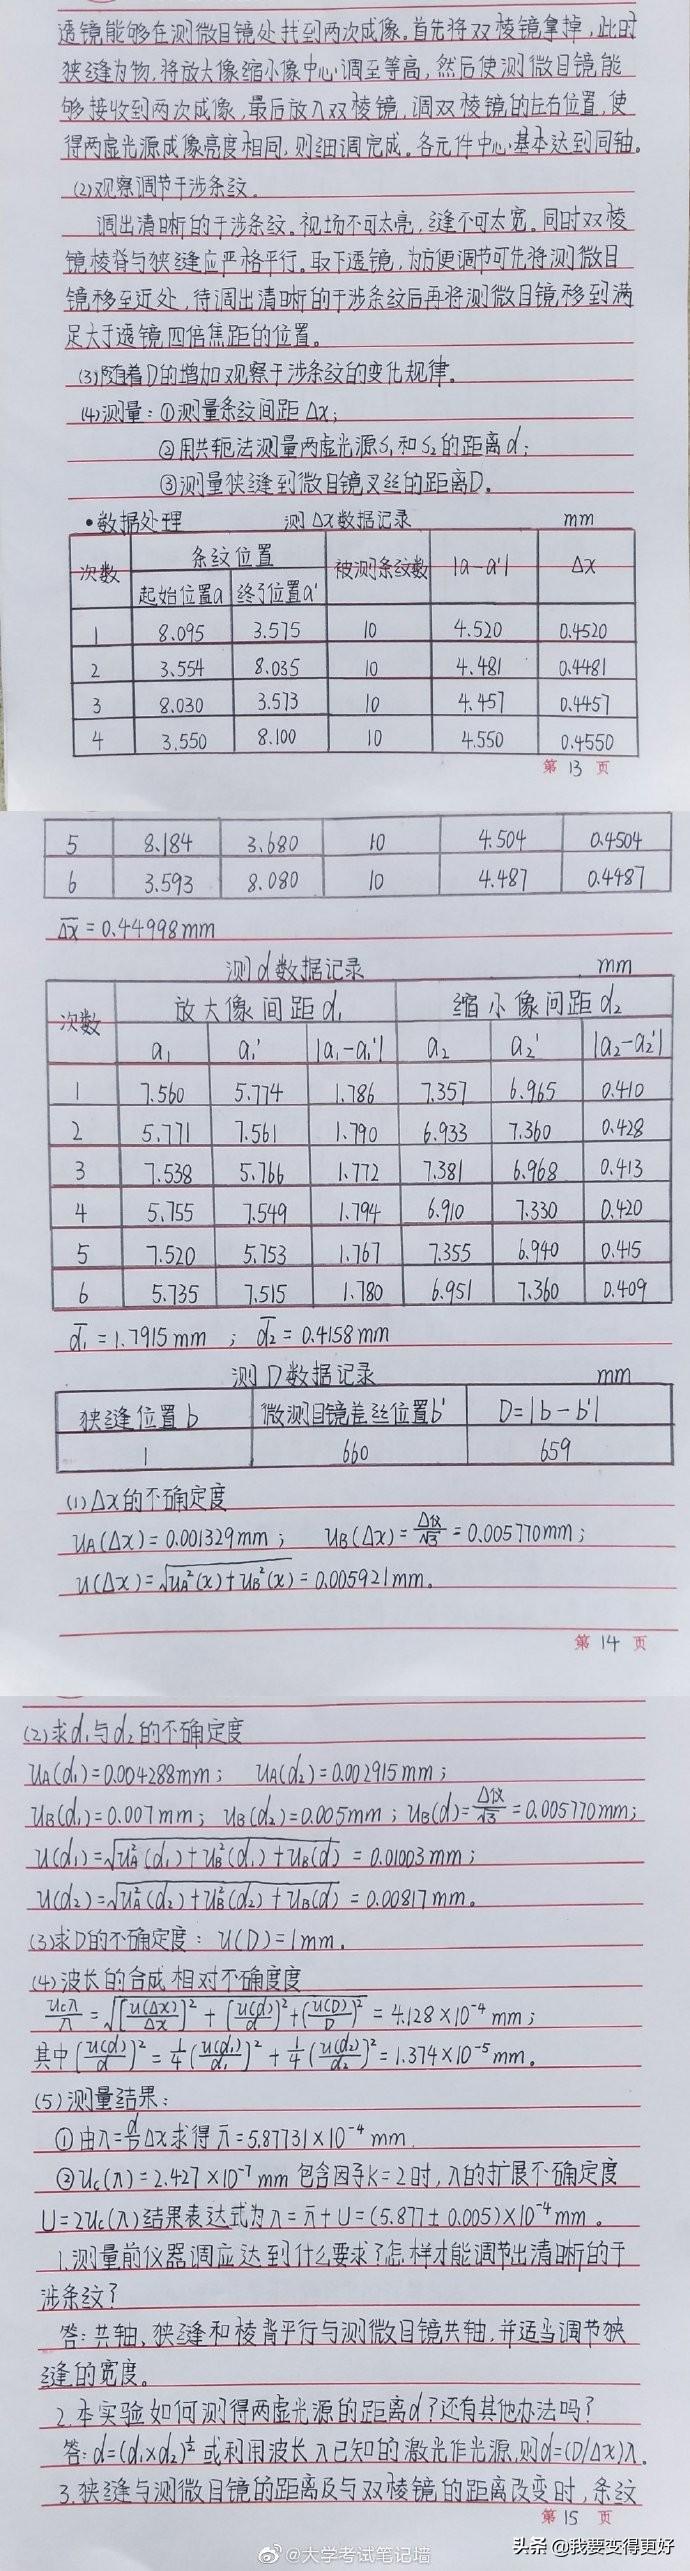 透镜能够在测微目镜处找到两次成像。首先将双棱镜拿掉，此时
狭缝为物，将放大像缩小像中心调至等高，然后使测微目镜能
够接收到两次成像，最后放入双棱镜，调双棱镜的左右位置，使
得两虚光源成像亮度相同，则细调完成。各元件中心基本达到同轴。
(2)观察调节干涉条纹。
调出清晰的干涉条纹。视场不可太亮，缝不可太宽。同时双棱
镜棱脊与狭缝应严格平行。取下透镜，为方便调节可先将测微目
镜移至近处，待调出清晰的干涉条纹后再将测微目镜移到满
足大于透镜四倍焦距的位置。
(3)随着D的增加观察干涉条纹的变化规律。
(4)测量：①测量条纹间距Δx；
②用共轭法测量两虚光源S₁和S₂的距离d；
③测量狭缝到微目镜叉丝的距离D。
•数据处理 测Δx数据记录 mm
次数 条纹位置 被测条纹数 |a-a'| Δx
起始位置a 终了位置a'
1 8.095 3.575 10 4.520 0.4520
2 3.554 8.035 10 4.481 0.4481
3 8.030 3.573 10 4.457 0.4457
4 3.550 8.100 10 4.550 0.4550
第 13 页
5 8.184 3.680 10 4.504 0.4504
6 3.593 8.080 10 4.487 0.4487
Δx̄=0.44998mm
测d数据记录 mm
次数 放大像间距d₁ 缩小像间距d₂
a₁ a₁' |a₁-a₁'| a₂ a₂' |a₂-a₂'|
1 7.560 5.774 1.786 7.357 6.965 0.410
2 5.771 7.561 1.790 6.933 7.360 0.428
3 7.538 5.766 1.772 7.381 6.968 0.413
4 5.755 7.549 1.794 6.910 7.330 0.420
5 7.520 5.753 1.767 7.355 6.940 0.415
6 5.735 7.515 1.780 6.951 7.360 0.409
d̄₁=1.7915mm ; d̄₂=0.4158mm
测D数据记录 mm
狭缝位置b 微测目镜差丝位置b' D=|b-b'|
1 660 659
(1)Δx的不确定度
uA(Δx)=0.001329mm； uB(Δx)=Δ仪/√3=0.005770mm；
u(Δx)=√(uA²(x)+uB²(x))=0.005921mm。
第 14 页
(2)求d₁与d₂的不确定度
uA(d₁)=0.004288mm； uA(d₂)=0.002915mm；
uB(d₁)=0.007mm；uB(d₂)=0.005mm；uB(d)=Δ仪/√3=0.005770mm；
u(d₁)=√(uA²(d₁)+uB²(d₁)+uB(d))=0.01003mm；
u(d₂)=√(uA²(d₂)+uB²(d₂)+uB(d))=0.00817mm。
(3)求D的不确定度：u(D)=1mm。
(4)波长的合成相对不确度度
ucλ/λ=√([u(Δx)/Δx]²+[u(d)/d]²+(u(D)/D)²)=4.128×10⁻⁴mm；
其中(u(d)/d)²=1/4(u(d₁)/d₁)²+1/4(u(d₂)/d₂)²=1.374×10⁻⁵mm。
(5)测量结果：
①由λ=d/DΔx求得λ̄=5.87731×10⁻⁴mm.
②uc(λ)=2.427×10⁻⁷mm包含因子K=2时，λ的扩展不确定度
U=2uc(λ)结果表达式为λ=λ̄+U=(5.877±0.005)×10⁻⁴mm。
1.测量前仪器调应达到什么要求?怎样才能调节出清晰的干
涉条纹?
答：共轴、狭缝和棱背平行与测微目镜共轴，并适当调节狭
缝的宽度。
2.本实验如何测得两虚光源的距离d?还有其他办法吗?
答：d=(d₁×d₂)^½或利用波长λ已知的激光作光源，则d=(D/Δx)λ。
3.狭缝与测微目镜的距离及与双棱镜的距离改变时，条纹
第 15 页
@大学考试笔记墙
头条 @我要变得更好